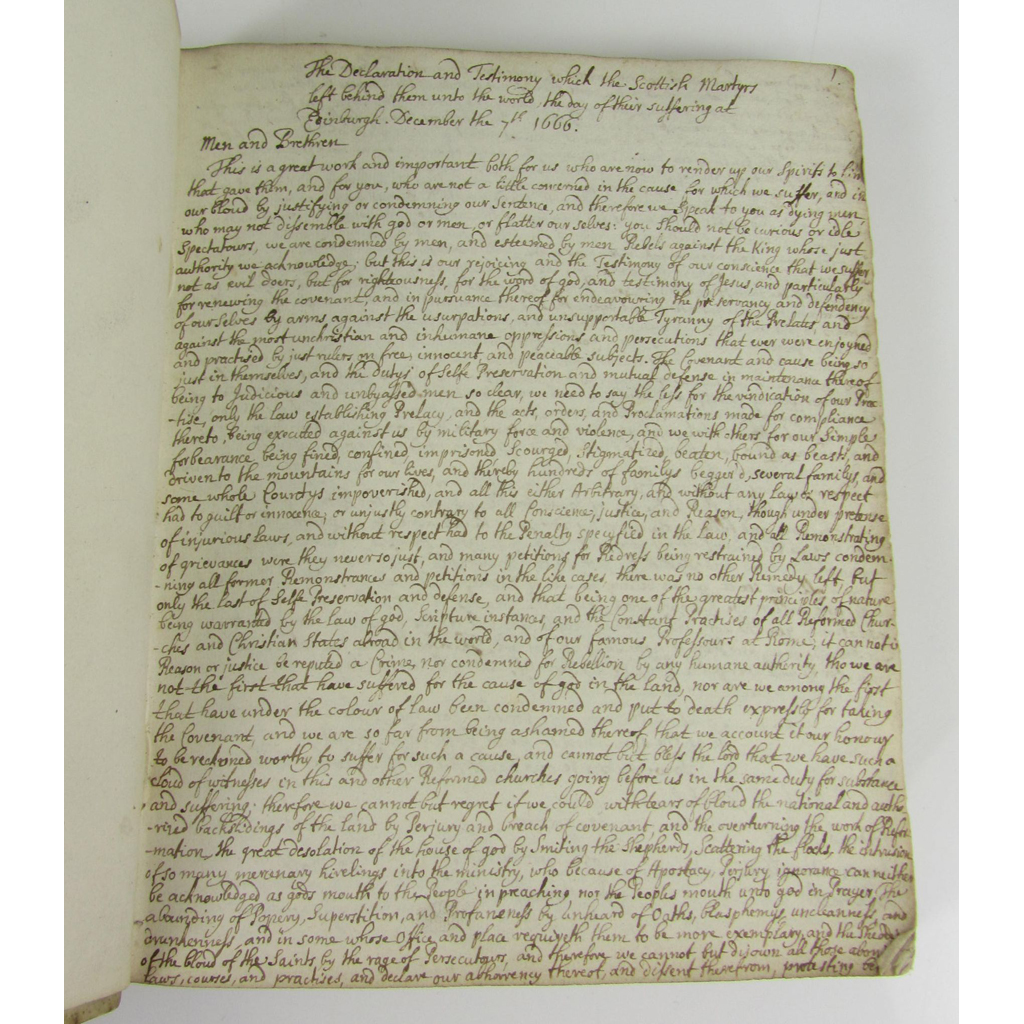 1.
The Declaration and Testimony which the Scottish Martyrs
left behind them unto the world, the day of their suffering at
Edinburgh. December the 7th 1666.
Men and Brethren
This is a great work and important both for us who are now to render up our Spirits to him
that gave them, and for you, who are not a little concerned in the cause for which we suffer, and in
our bloud by justifying or condemning our Sentence, and therefore we Speak to you as dying men,
who may not dissemble with god or men, or flatter our selves: you should not be curious or idle
Spectatours, we are condemned by men, and esteemed by men Rebels against the King whose just
authority we acknowledge; but this is our rejoicing and the Testimony of our conscience that we suffer
not as evil doers, but for righteousness, for the word of god, and testimony of Jesus, and particularly
for renewing the covenant, and in pursuance thereof for endeavouring the preservancy and defendency
of ourselves by arms against the usurpations, and unsupportable Tyranny of the Prelates, and
against the most unchristian and inhumane oppressions and persecutions that ever were enjoyned
and practised by just rulers on free, innocent, and peaceable subjects. The Covenant and cause being so
just in themselves, and the dutys of Selfe Preservation and mutual defense in maintenance thereof
being to Judicious and unbyassed men so clear, we need to say the less for the vindication of our Prac
-tise, only the law establishing Prelacy, and the acts, orders, and Proclamations made for compliance
thereto, being executed against us by military force and violence, and we with others for our Simple
forbearance being fined, confined, imprisoned, Scourged, Stigmatized, beaten, bound as beasts, and
driven to the mountains for our lives, and thereby hundreds of familys begger'd, several familys, and
some whole Countrys impoverished, and all this either Arbitrary, and without any Law; respect
had to guilt or innocence; or unjustly contrary to all Conscience, justice, and Reason, though under pretense
of injurious laws, and without respect had to the Penalty specyfied in the law, and all Remonstrating
of grievances were they never so just, and many petitions for Redress being restrained by Laws condem-
-ning all former Remonstrances and petitions in the like cases, there was no other Remedy left, but
only the last of Selfe Preservation and defense, and that being one of the greatest principles of nature
being warranted by the law of god, Scripture instances, and the Constant Practises of all Reformed Chur-
-ches and Christian States abroad in the world, and of our famous Professours at Rome; it can not i
Reason or justice be reputed a Crime, nor condemned for Rebellion by any humane authority, tho we are
not the first that have suffered for the cause of god in the land, nor are we among the first
that have under the colour of law been condemned and put to death expressly for taking
the Covenant, and we are so far from being ashamed thereof, that we account it our honour
to be reckoned worthy to suffer for such a cause, and cannot but bless the lord that we have such a
cloud of witnesses in this and other Reformed churches going before us in the same duty for substance
and suffering: therefore we cannot but regret if we could with tears of bloud the national and autho
-rized backslidings of the land by Perjury and breach of covenant, and the overturning the work of Refor
-mation, the great desolation of the house of god by Smiting the Shepherds, Scattering the flocks, the intrusion
of so many mercenary hirelings into the ministry, who because of Apostacy, Perjury, ignorance can neither
be acknowledged as gods mouth to the People in preaching, nor the Peoples mouth unto god in Prayer. The
abounding of Popery, Superstition, and Profaneness by unheard of Oaths, blasphemys, uncleanness, and
drunkenness, and in some whose Office and place requireth them to be more exemplary, and the
of the bloud of the Saints by the rage of Persecutours, and therefore we cannot but disown all those abom
laws, courses, and practises, and declare our abhorrency thereof, and dissent therefrom, protesting be